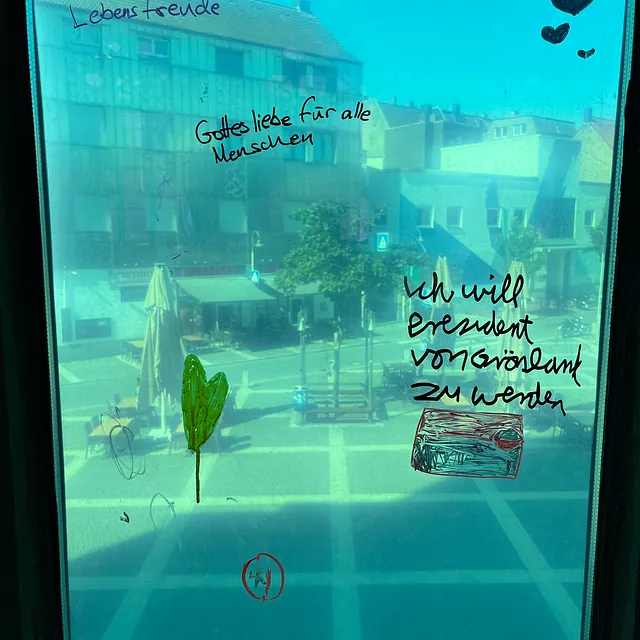 Lebensfreude
Gottes liebe für alle
Menschen
ich will
Presedent
von Grönland
zu werden